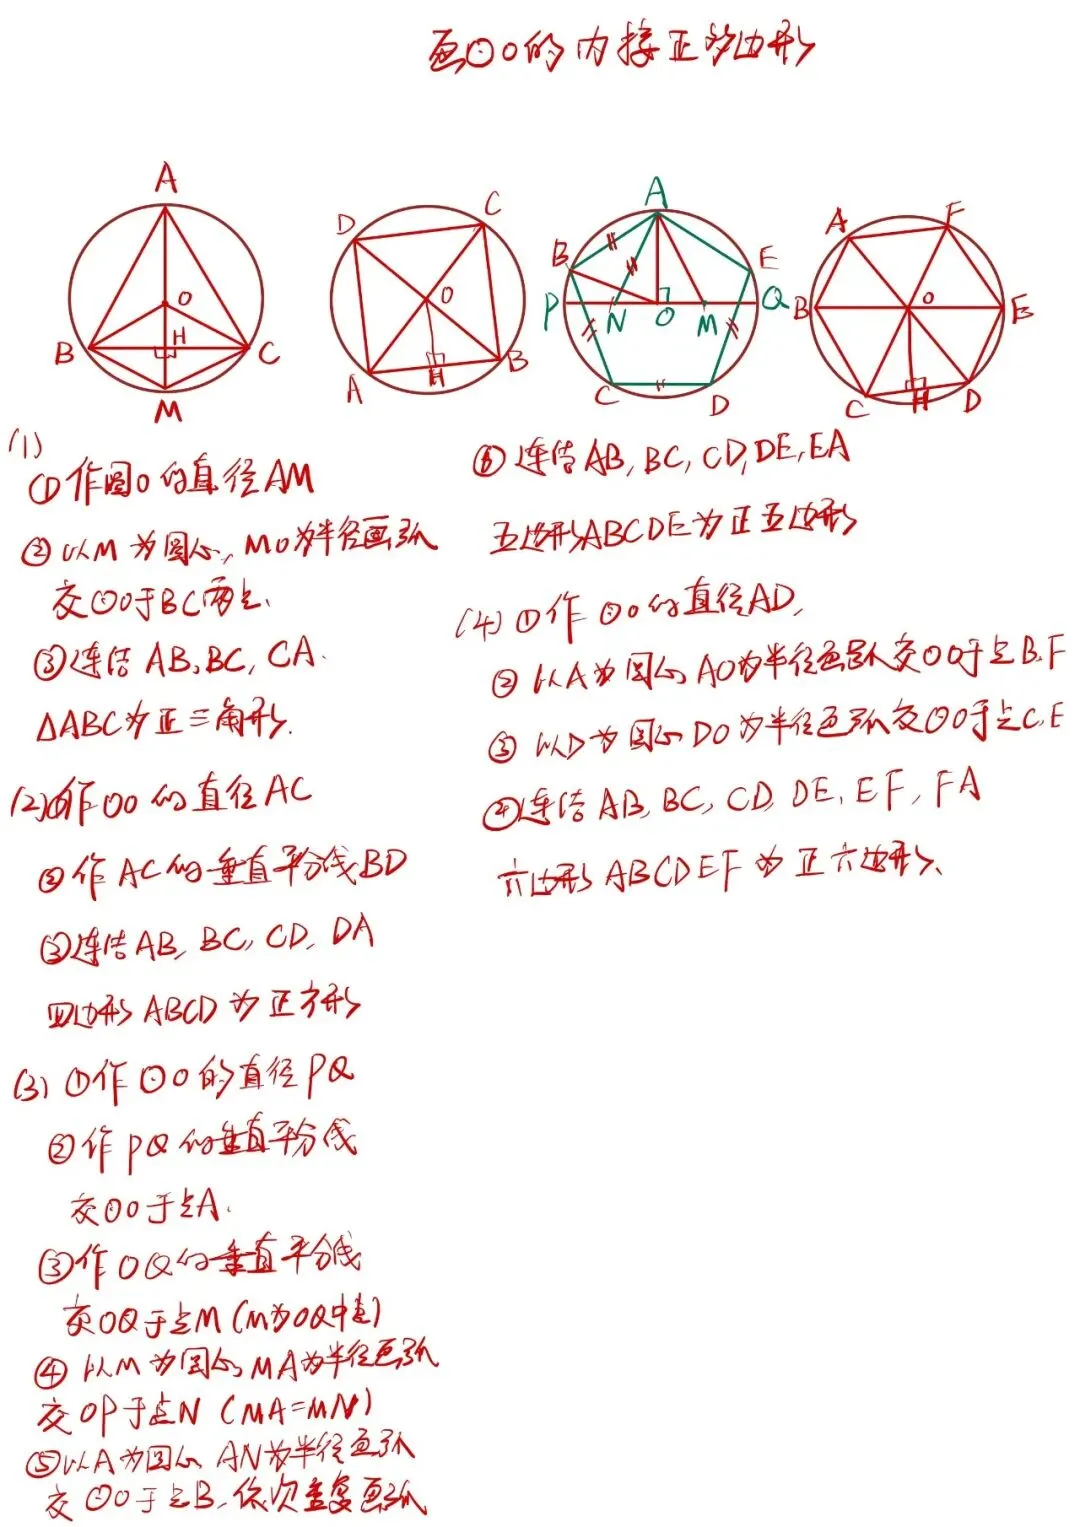 画⊙O的内接正多边形
A
O
H
B
C
M
D
C
O
A
H
B
A
B
E
P
N
O
M
Q
C
D
A
F
B
O
E
C
H
D
(1)
①作圆O的直径AM
②以M为圆心,MO为半径画弧
交⊙O于BC两点.
③连结AB,BC,CA.
△ABC为正三角形.
(2)①作⊙O的直径AC
②作AC的垂直平分线BD
③连结AB,BC,CD,DA
四边形ABCD为正方形
(3)①作⊙O的直径PQ
②作PQ的垂直平分线
交⊙O于点A.
③作OQ的垂直平分线
交OQ于点M(M为OQ中点)
④以M为圆心,MA为半径画弧
交OP于点N(MA=MN)
⑤以A为圆心AN为半径画弧
交⊙O于点B,依次重复画弧
⑥连结AB,BC,CD,DE,EA
五边形ABCDE为正五边形
(4)①作⊙O的直径AD,
②以A为圆心,AO为半径画弧交⊙O于点B.F
③以D为圆心DO为半径画弧交⊙O于点C,E
④连结AB,BC,CD,DE,EF,FA
六边形ABCDEF为正六边形.